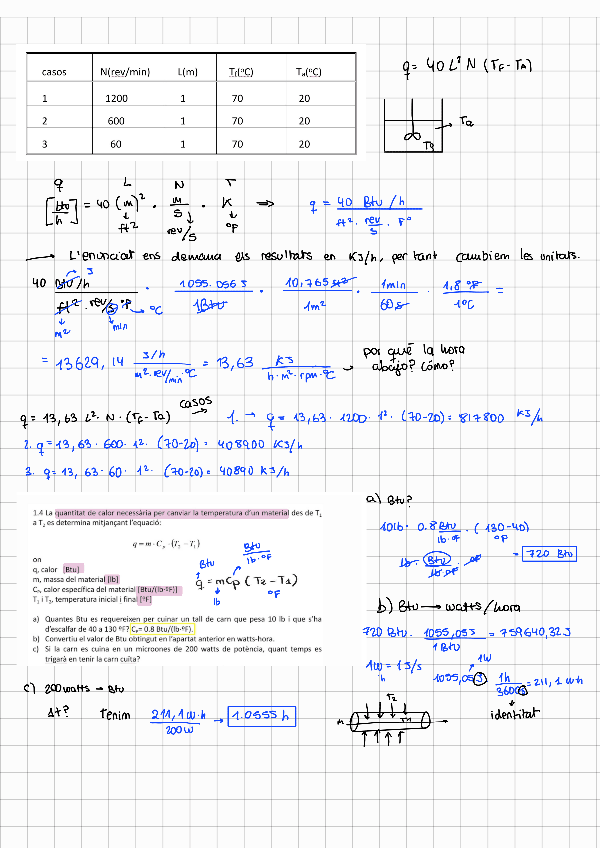 casos N(rev/min) L(m) Tf(ºC) Ta(ºC)
1 1200 1 70 20
2 600 1 70 20
3 60 1 70 20
q = 40 L² N (TF - TA)
Ta
q L N T
[btu/h] = 40 (m)² · m/s · K ⟹ q = 40 Btu/h / ft² · rev/s · Fº
ft² rev/s ºF
→ L'enunciat ens demana els resultats en KJ/h, per tant canviem les unitats.
40 Btu/h / ft² · rev/s · ºF · 1055.056 J / 1 Btu · 10,765 ft² / 1m² · 1min / 60s · 1,8 ºF / 1ºC =
J → ºC
m² min
= 13629,14 J/h / m² · rev/min · ºC = 13,63 KJ / h · m² · rpm · ºC
por qué la hora
abajo? cómo?
q = 13,63 L² · N · (TF - Ta) casos → 1. → q = 13,63 · 1200 · 1² · (70-20) = 817800 KJ/h
2. q = 13,63 · 600 · 1² · (70-20) = 408900 KJ/h
3. q = 13,63 · 60 · 1² · (70-20) = 40890 KJ/h
1.4 La quantitat de calor necessària per canviar la temperatura d'un material des de T₁
a T₂ es determina mitjançant l'equació:
q = m · Cp · (T₂ − T₁)
on
q, calor [Btu]
m, massa del material [lb]
Cp, calor específica del material [Btu/(lb·ºF)]
T₁ i T₂, temperatura inicial i final [ºF]
Btu Btu/lb·ºF
q = m Cp (T2 - T1)
lb ºF
a) Quantes Btu es requereixen per cuinar un tall de carn que pesa 10 lb i que s'ha
d'escalfar de 40 a 130 ºF? Cp= 0.8 Btu/(lb·ºF).
b) Convertiu el valor de Btu obtingut en l'apartat anterior en watts-hora.
c) Si la carn es cuina en un microones de 200 watts de potència, quant temps es
trigarà en tenir la carn cuita?
a) Btu?
10lb · 0.8 Btu/lb·ºF · (130-40) ºF
lb · Btu/lb·ºF · ºF = 720 Btu
b) Btu → watts/hora
720 Btu · 1055,053 / 1 Btu = 759640,32J
1W = 1J/s
h
1W
1055,05J · 1h / 3600s = 211,1 W·h
identitat
c) 200 watts → Btu
Δt? Tenim 211,1 W·h / 200W → 1.0555 h
T2
m T1